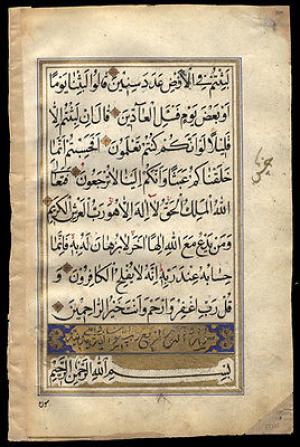 لَبِثْتُمْ فِي الْأَرْضِ عَدَدَ سِنِينَ قَالُوا لَبِثْنَا يَوْمًا
أَوْ بَعْضَ يَوْمٍ فَسْئَلِ الْعَادِّينَ قَالَ إِنْ لَبِثْتُمْ إِلَّا
قَلِيلًا لَوْ أَنَّكُمْ كُنْتُمْ تَعْلَمُونَ أَفَحَسِبْتُمْ أَنَّمَا
خَلَقْنَاكُمْ عَبَثًا وَأَنَّكُمْ إِلَيْنَا لَا تُرْجَعُونَ فَتَعَالَى
اللهُ الْمَلِكُ الْحَقُّ لَا إِلَهَ إِلَّا هُوَ رَبُّ الْعَرْشِ الْكَرِيمِ
وَمَنْ يَدْعُ مَعَ اللهِ إِلَهًا آخَرَ لَا بُرْهَانَ لَهُ بِهِ فَإِنَّمَا
حِسَابُهُ عِنْدَ رَبِّهِ إِنَّهُ لَا يُفْلِحُ الْكَافِرُونَ وَ
قُلْ رَبِّ اغْفِرْ وَارْحَمْ وَأَنْتَ خَيْرُ الرَّاحِمِينَ
بِسْمِ اللهِ الرَّحْمَنِ الرَّحِيمِ